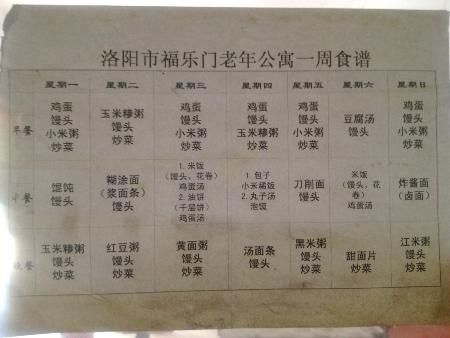 洛阳市福乐门老年公寓一周食谱
星期一 星期二 星期三 星期四 星期五 星期六 星期日
早餐
鸡蛋
馒头
小米粥
炒菜
玉米糁粥
馒头
炒菜
鸡蛋
馒头
小米粥
炒菜
鸡蛋
馒头
玉米糁粥
炒菜
鸡蛋
馒头
小米粥
炒菜
豆腐汤
馒头
鸡蛋
馒头
小米粥
炒菜
中餐
馄饨
馒头
糊涂面
(浆面条)
馒头
1. 米饭
(馒头、花卷)
鸡蛋汤
2. 油饼
(千层饼)
鸡蛋汤
1. 包子
小米稀饭
2. 丸子汤
泡馍
刀削面
馒头
米饭
(馒头、花
卷)
鸡蛋汤
炸酱面
(卤面)
晚餐
玉米糁粥
馒头
炒菜
红豆粥
馒头
炒菜
黄面粥
馒头
炒菜
汤面条
馒头
黑米粥
馒头
炒菜
甜面片
炒菜
江米粥
馒头
炒菜